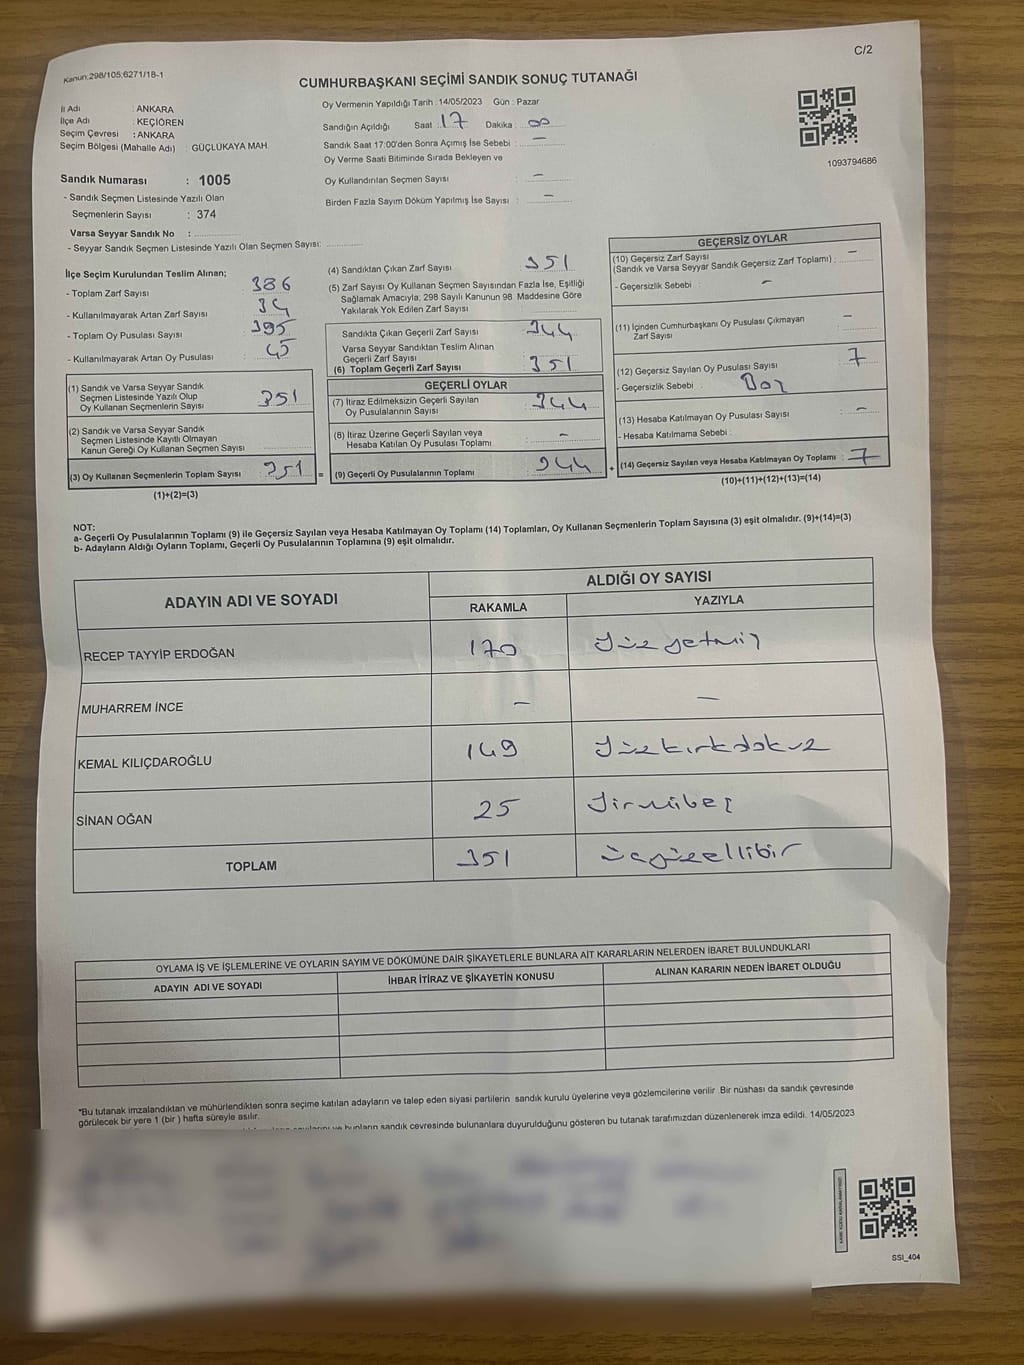 C/2
Kanun:298/105;6271/18-1
CUMHURBAŞKANI SEÇİMİ SANDIK SONUÇ TUTANAĞI
İl Adı : ANKARA
İlçe Adı : KEÇİÖREN
Seçim Çevresi : ANKARA
Seçim Bölgesi (Mahalle Adı) : GÜÇLÜKAYA MAH.
Sandık Numarası : 1005
- Sandık Seçmen Listesinde Yazılı Olan
Seçmenlerin Sayısı : 374
Varsa Seyyar Sandık No :
- Seyyar Sandık Seçmen Listesinde Yazılı Olan Seçmen Sayısı:
Oy Vermenin Yapıldığı Tarih : 14/05/2023 Gün : Pazar
Sandığın Açıldığı Saat : 17 Dakika : 00
Sandık Saat 17:00'den Sonra Açımış İse Sebebi : —
Oy Verme Saati Bitiminde Sırada Bekleyen ve
Oy Kullandırılan Seçmen Sayısı : —
Birden Fazla Sayım Döküm Yapılmış İse Sayısı : —
1093794686
İlçe Seçim Kurulundan Teslim Alınan;
- Toplam Zarf Sayısı : 386
- Kullanılmayarak Artan Zarf Sayısı : 34
- Toplam Oy Pusulası Sayısı : 395
- Kullanılmayarak Artan Oy Pusulası : 45
(1) Sandık ve Varsa Seyyar Sandık
Seçmen Listesinde Yazılı Olup
Oy Kullanan Seçmenlerin Sayısı : 351
(2) Sandık ve Varsa Seyyar Sandık
Seçmen Listesinde Kayıtlı Olmayan
Kanun Gereği Oy Kullanan Seçmen Sayısı :
(3) Oy Kullanan Seçmenlerin Toplam Sayısı : 351 =
(1)+(2)=(3)
(4) Sandıktan Çıkan Zarf Sayısı : 351
(5) Zarf Sayısı Oy Kullanan Seçmen Sayısından Fazla İse, Eşitliği
Sağlamak Amacıyla; 298 Sayılı Kanunun 98. Maddesine Göre
Yakılarak Yok Edilen Zarf Sayısı :
Sandıkta Çıkan Geçerli Zarf Sayısı : 344
Varsa Seyyar Sandıktan Teslim Alınan
Geçerli Zarf Sayısı
(6) Toplam Geçerli Zarf Sayısı : 351
GEÇERLİ OYLAR
(7) İtiraz Edilmeksizin Geçerli Sayılan
Oy Pusulalarının Sayısı : 344
(8) İtiraz Üzerine Geçerli Sayılan veya
Hesaba Katılan Oy Pusulası Toplamı : —
(9) Geçerli Oy Pusulalarının Toplamı : 344 +
GEÇERSİZ OYLAR
(10) Geçersiz Zarf Sayısı
(Sandık ve Varsa Seyyar Sandık Geçersiz Zarf Toplamı) : —
- Geçersizlik Sebebi : —
(11) İçinden Cumhurbaşkanı Oy Pusulası Çıkmayan
Zarf Sayısı : —
(12) Geçersiz Sayılan Oy Pusulası Sayısı : 7
- Geçersizlik Sebebi :
(13) Hesaba Katılmayan Oy Pusulası Sayısı : —
- Hesaba Katılmama Sebebi :
(14) Geçersiz Sayılan veya Hesaba Katılmayan Oy Toplamı : 7
(10)+(11)+(12)+(13)=(14)
NOT:
a- Geçerli Oy Pusulalarının Toplamı (9) ile Geçersiz Sayılan veya Hesaba Katılmayan Oy Toplamı (14) Toplamları, Oy Kullanan Seçmenlerin Toplam Sayısına (3) eşit olmalıdır. (9)+(14)=(3)
b- Adayların Aldığı Oyların Toplamı, Geçerli Oy Pusulalarının Toplamına (9) eşit olmalıdır.
ADAYIN ADI VE SOYADI
ALDIĞI OY SAYISI
RAKAMLA YAZIYLA
RECEP TAYYİP ERDOĞAN 170 Yüz yetmiş
MUHARREM İNCE — —
KEMAL KILIÇDAROĞLU 149 Yüz kırk dokuz
SİNAN OĞAN 25 Yirmibeş
TOPLAM 351 üçyüzellibir
OYLAMA İŞ VE İŞLEMLERİNE VE OYLARIN SAYIM VE DÖKÜMÜNE DAİR ŞİKAYETLERLE BUNLARA AİT KARARLARIN NELERDEN İBARET BULUNDUKLARI
ADAYIN ADI VE SOYADI İHBAR İTİRAZ VE ŞİKAYETİN KONUSU ALINAN KARARIN NEDEN İBARET OLDUĞU
*Bu tutanak imzalandıktan ve mühürlendikten sonra seçime katılan adayların ve talep eden siyasi partilerin sandık kurulu üyelerine veya gözlemcilerine verilir. Bir nüshası da sandık çevresinde
görülecek bir yere 1 (bir ) hafta süreyle asılır.
ve bunların sandık çevresinde bulunanlara duyurulduğunu gösteren bu tutanak tarafımızdan düzenlenerek imza edildi. 14/05/2023
SSI_404